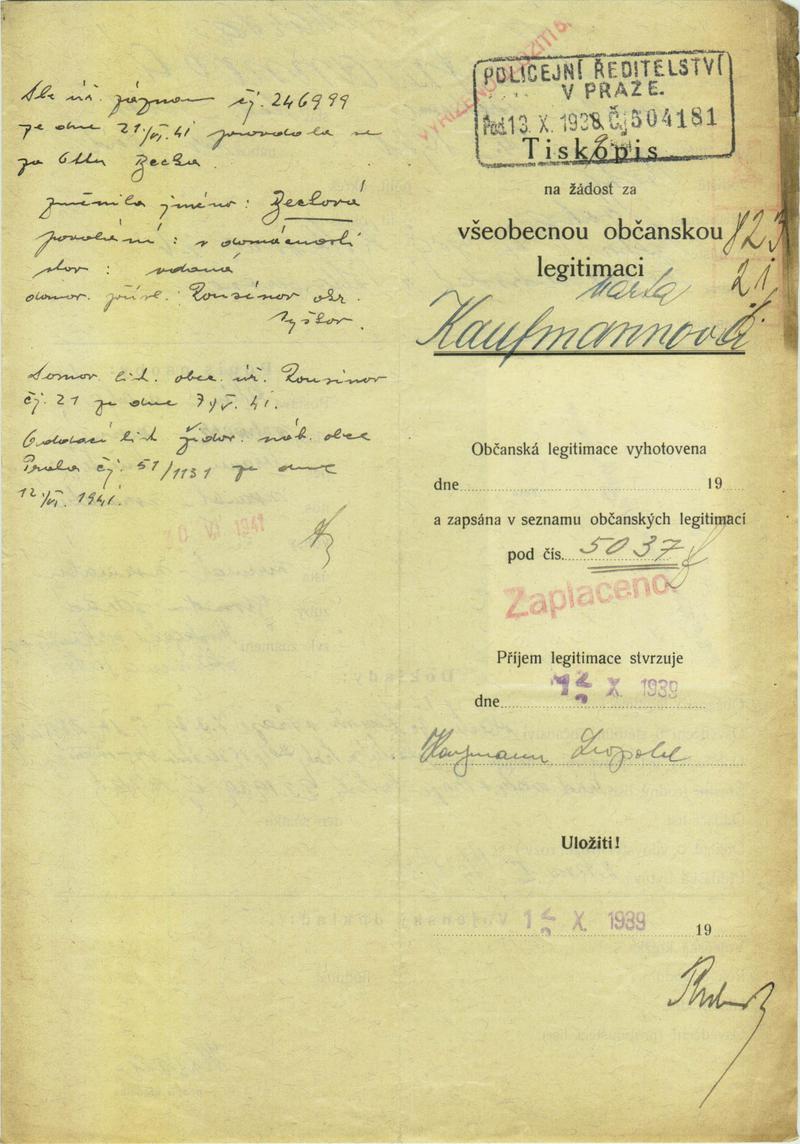 Dle úř. záznam čj. 246999
ze dne 21/VI. 41 provdala se
za Otto Zecka.
změnila jméno: Zecková
povolání: v domácnosti
stav: vdaná
domov. přísl. Rousínov okr.
Vyškov.
Domov. list. obec. úř. Rousínov
čj. 21 ze dne 7/V. 41.
Oddací list židov. náb. obce
Praha čj. 51/1131 ze dne
12./VI. 1941.
20 VI 1941
POLICEJNÍ ŘEDITELSTVÍ
V PRAZE.
Pod. 13. X. 1938 Čj. 504181
Tiskopis
na žádost za
všeobecnou občanskou
legitimaci
823
21
Marta
Kaufmannová
Občanská legitimace vyhotovena
dne 19
a zapsána v seznamu občanských legitimací
pod čís. 5037
Zaplaceno.
Příjem legitimace stvrzuje
dne 12 X 1939
Kaufmann Leopold
Uložiti!
12 X. 1939 19